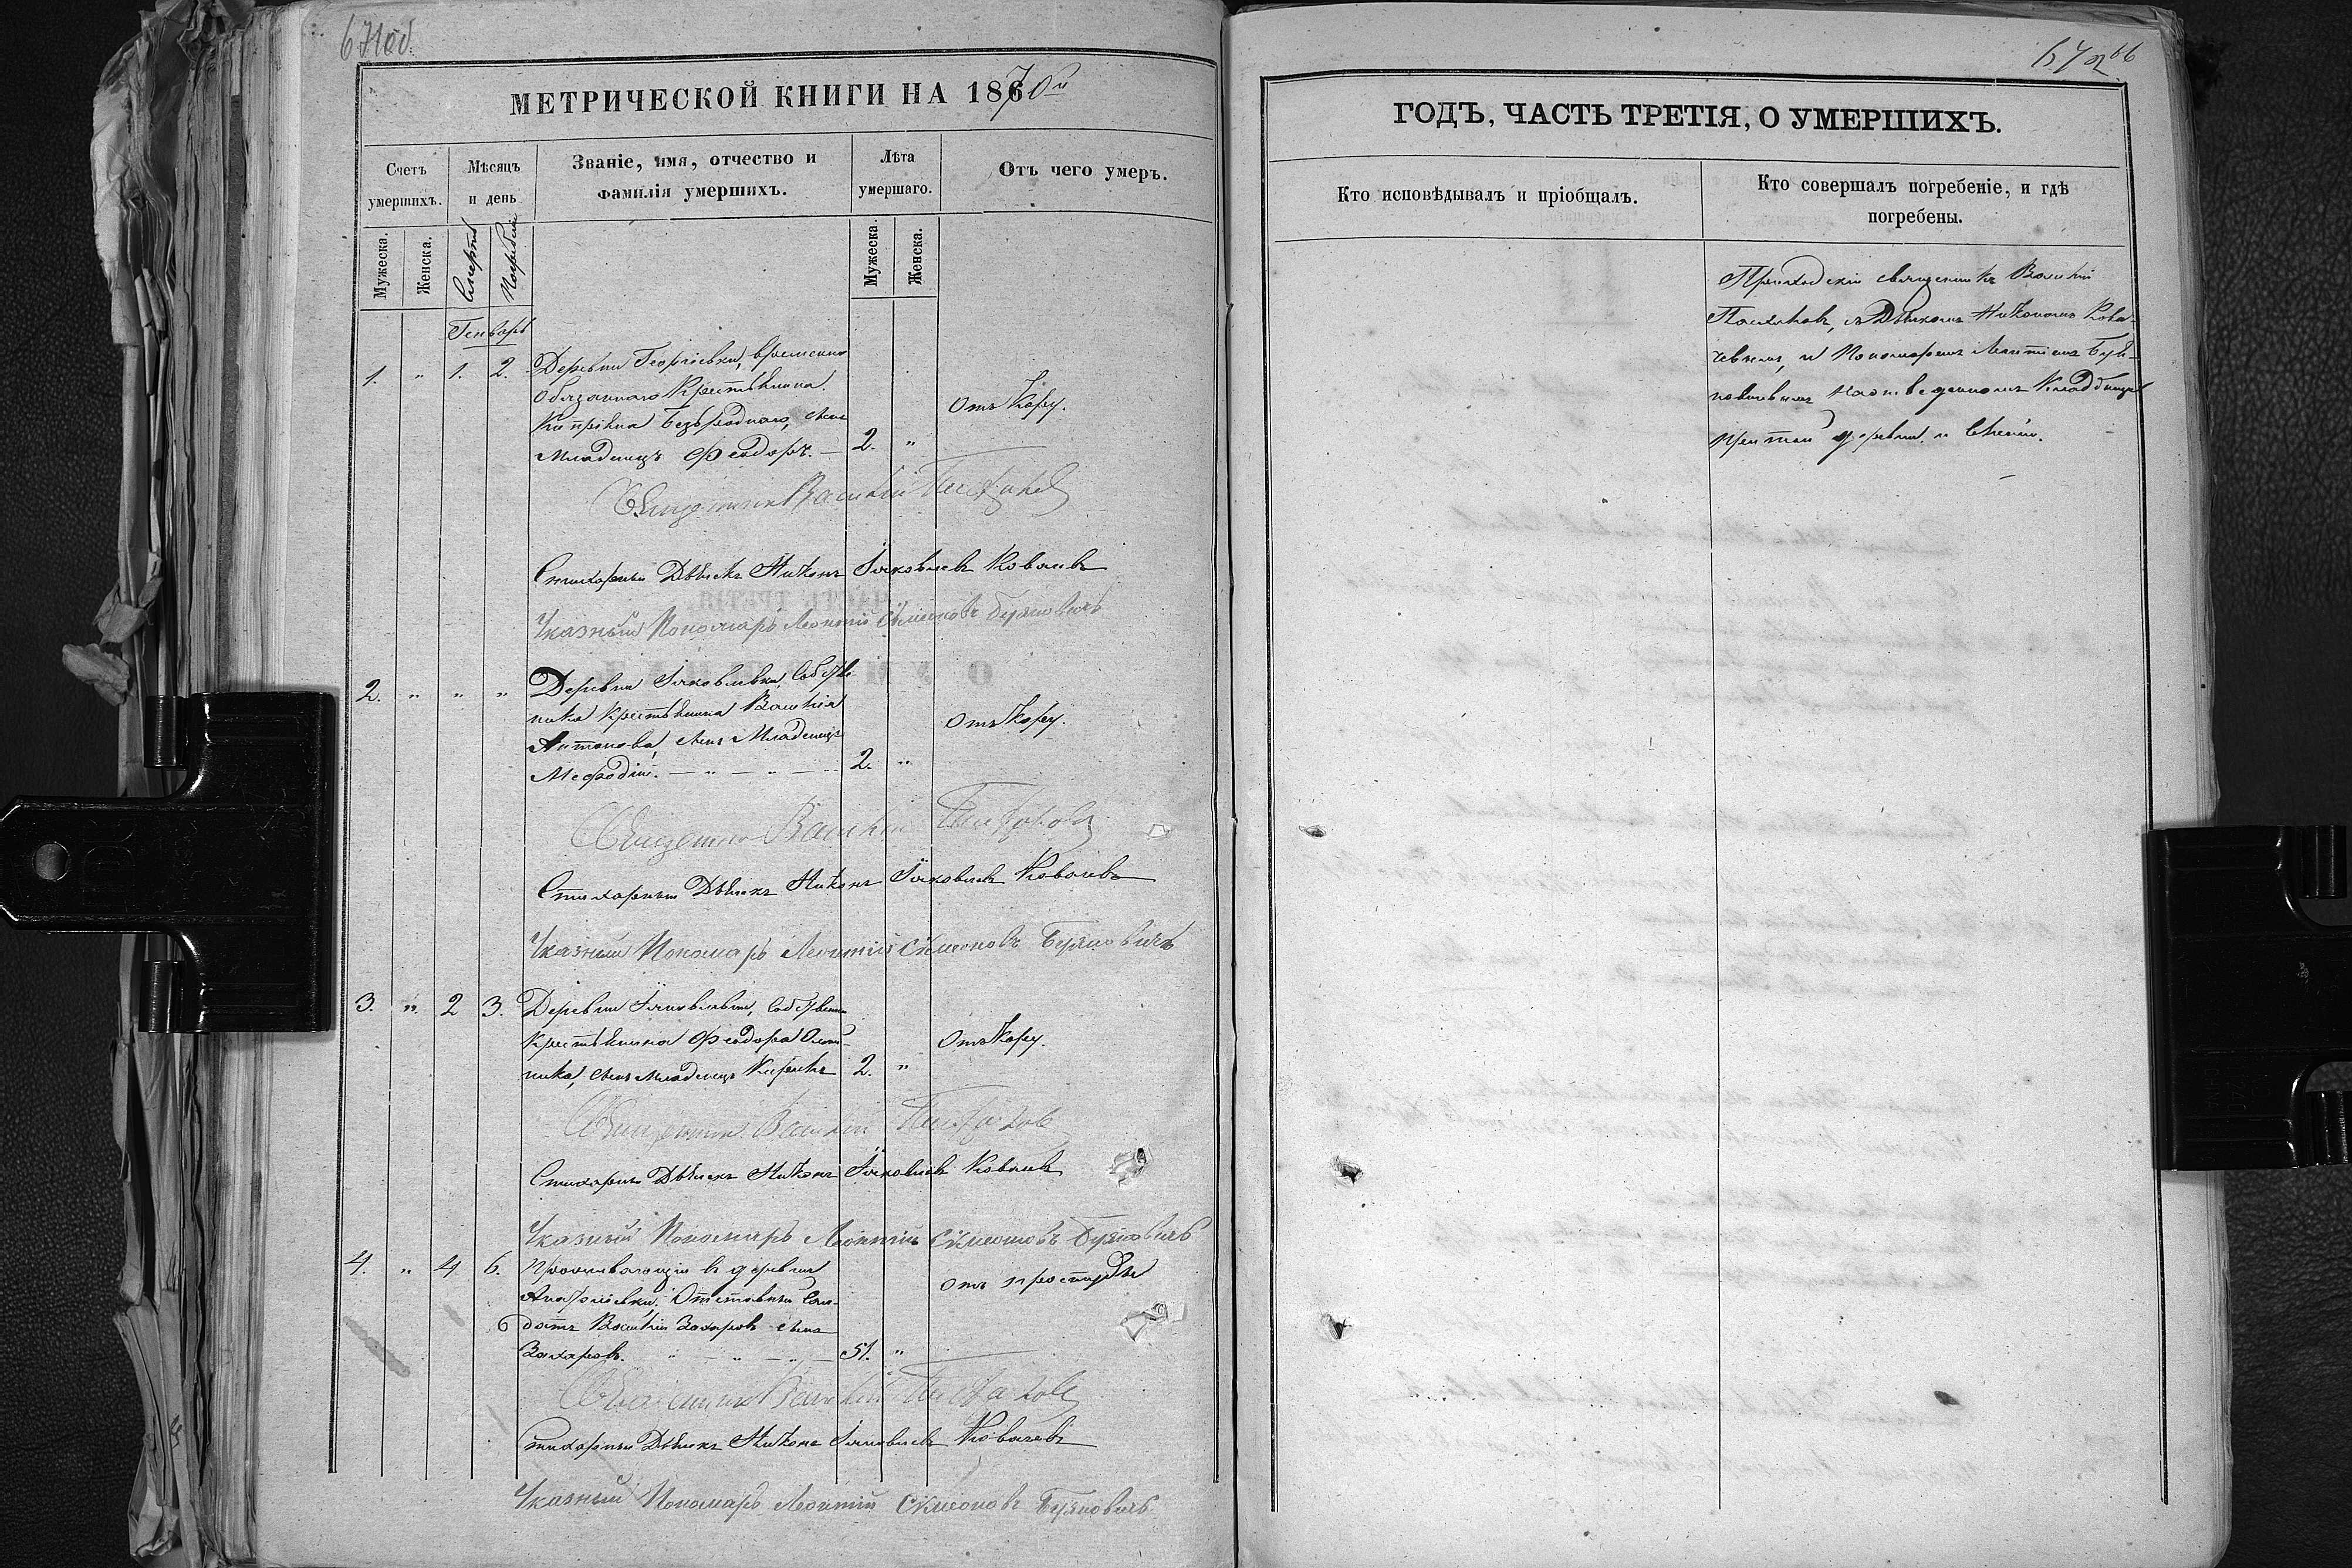 671 об.
МЕТРИЧЕСКОЙ КНИГИ НА 1870й
Счетъ умершихъ.
Мѣсяцъ и день
Званіе, имя, отчество и фамилія умершихъ.
Лѣта умершаго.
Отъ чего умеръ.
Мужеска.
Женска.
Смерти
Погребенія
Мужеска.
Женска.
Генварь
1. " 1. 2. Деревни Георгіевки, временно
обязаннаго крестьянина
Кипріяна Безъроднаго, сынъ
младенецъ Феодоръ. — 2. " Отъ Кору.
Священникъ Василій
Стихарный Дьячекъ Никонъ Іаковлевъ Ковалевъ
Указный Пономарь Леонтій Сѵмеоновъ Буяновичъ
2. " " " Деревни Іаковлевки, собстве-
ника крестьянина Василія
Антонова, сынъ младенецъ
Мефодій. — " — " — 2. " Отъ Кору.
Священникъ Василій
Стихарный Дьячекъ Никонъ Іаковлевъ Ковалевъ
Указный Пономарь Леонтій Сѵмеоновъ Буяновичъ
3. " 2 3. Деревни Іаковлевки, собствен
крестьянина Феодора
ника, сынъ младенецъ Кирикъ 2. " Отъ Кору.
Священникъ Василій
Стихарный Дьячекъ Никонъ Іаковлевъ Ковалевъ
Указный Пономарь Леонтій Сѵмеоновъ Буяновичъ
4. " 4 6. Проживающій въ деревни
Анатоліевки, Отставный Сол-
датъ Василій Захаровъ сынъ
Захаровъ. " — " — " — 51. " отъ простуды
Священникъ Василій
Стихарный Дьячекъ Никонъ Іаковлевъ Ковалевъ
Указный Пономарь Леонтій Сѵмеоновъ Буяновичъ
672 66
ГОДЪ, ЧАСТЬ ТРЕТІЯ, О УМЕРШИХЪ.
Кто исповѣдывалъ и пріобщалъ.
Кто совершалъ погребеніе, и гдѣ погребены.
Приходскій священникъ Василій
съ Дьячкомъ Никономъ Кова-
левымъ, и Пономаремъ Леонтіемъ Буя-
новичемъ на отведенномъ Кладбищѣ
при той деревни